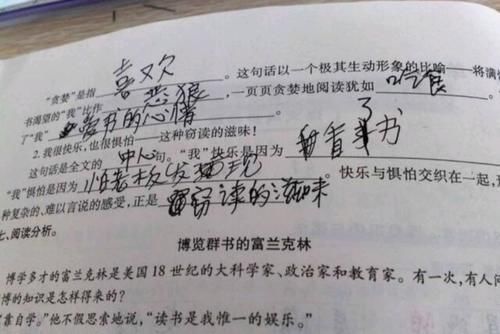 “贪婪”是指 喜欢 。这句话以一个极其生动形象的比喻——将满怀
书渴望的“我”比作 恶狼 ,一页页贪婪地阅读犹如 吃食
了“我” 爱书的心情
2. 我很快乐,也很惧怕——这种窃读的滋味!
这句话是全文的 中心 句。“我”快乐是因为 看了书
“我”惧怕是因为 怕老板发现 。快乐与惧怕交织在一起,形
种复杂的、难以言说的感受,正是 窃读的滋味
七、阅读分析。
博览群书的富兰克林
博学多才的富兰克林是美国 18 世纪的大科学家、政治家和教育家。有一次,有人问
博的知识是怎样得来的?
靠自学。”他不假思索地说,“读书是我惟一的娱乐。”